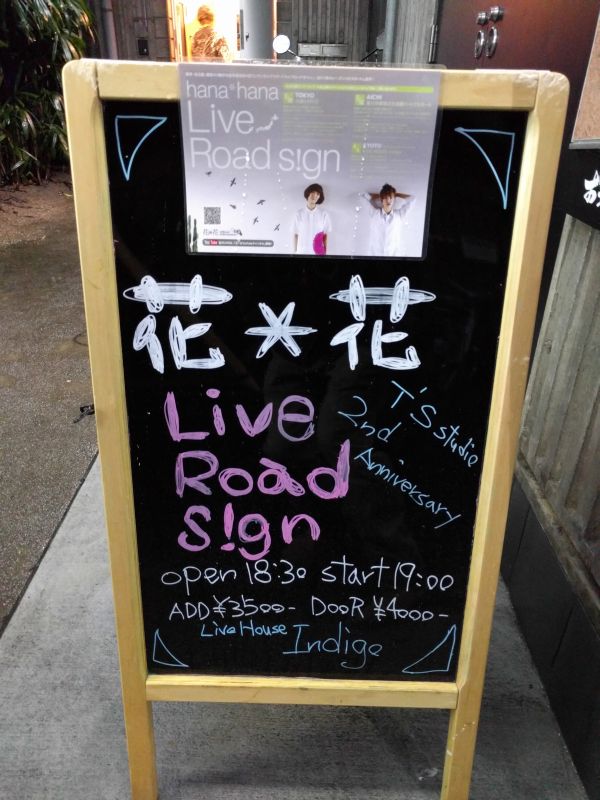 hana*hana
Live
Road s!gn
TOKYO
AICHI
KYOTO
花*花
Live
Road
S!gn
T'S studio
2nd
Anniversary
open 18:30 start 19:00
ADD ¥3500- DooR ¥4000-
Live House Indigo